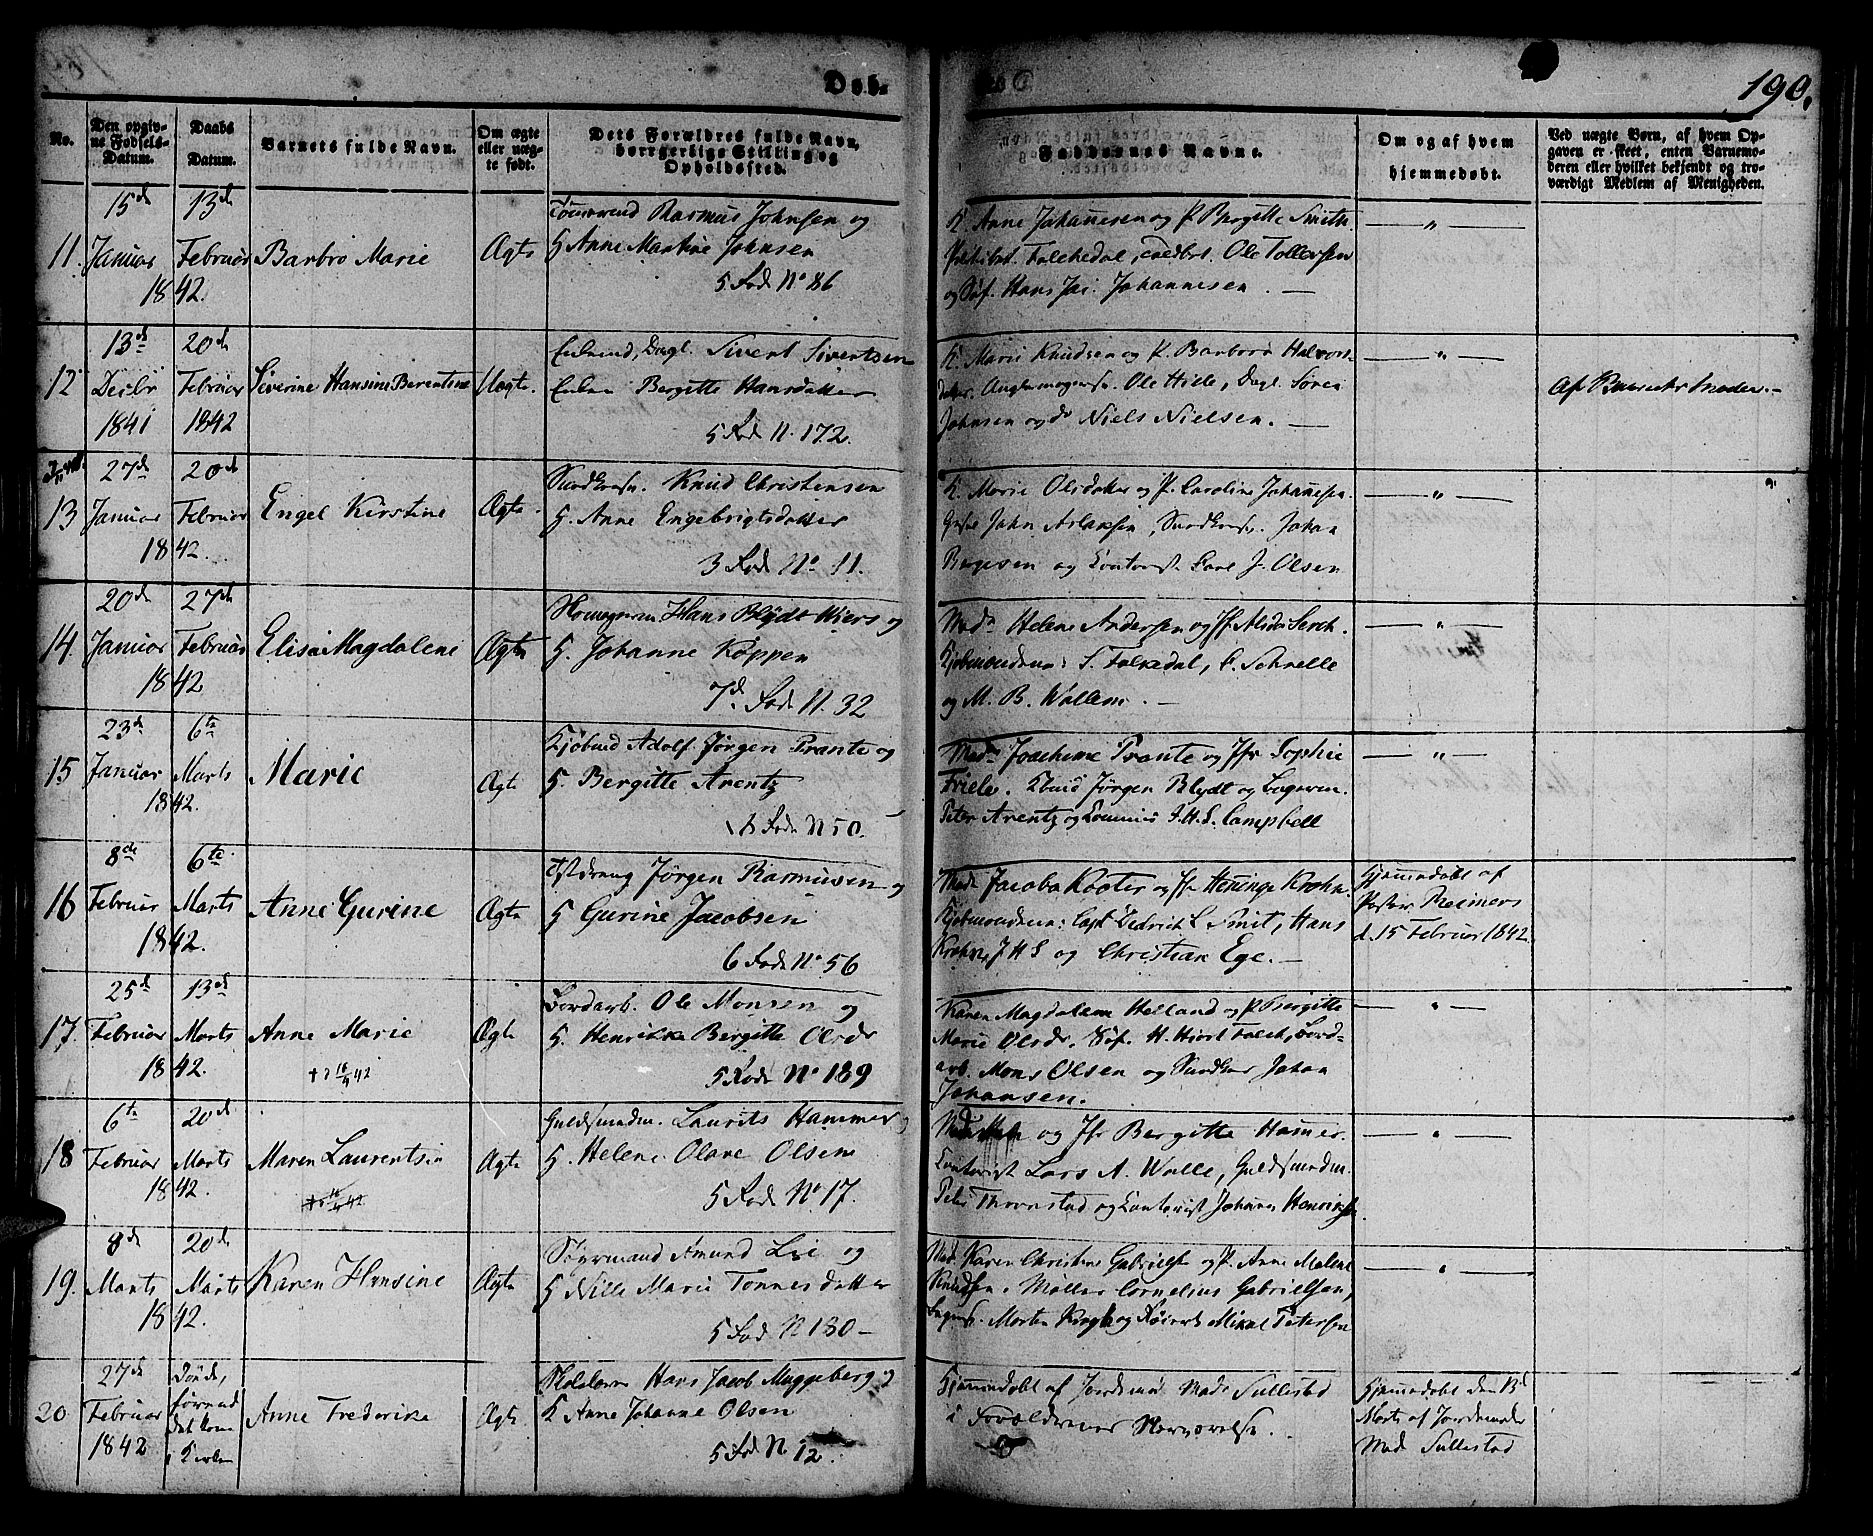 Døb-
190.
No.
Den opgiv-
ne Fødsels-
Datum.
Daabs
Datum.
Barnets fulde Navn.
Om ægte
eller uæg-
te født.
Dets Forældres fulde Navn,
borgerlige Stilling og
Opholdssted.
Faddernes Navne.
Om og af hvem
hjemmedøbt.
Ved uægte Børn, af hvem Op-
gaven er skeet, enten Barnemo-
deren eller hvilket bekjendt og tro-
værdigt Medlem af Menigheden.
11.
15de
Januar
1842.
13de
Februar
Barbro Marie
Ægte
Rasmus Johnsen og
H. Anne Martine Johnsen
5 Rode No 86
K. Anne Johannesen og P. Bergitte Smith.
Falchedal, Ole Tollefsen
og Hans Jac. Johannesen. —
— " —
12
13de
Decbr
1841
20de
Februar
1842
Siverine Hansine Berentine
Uægte.
Sivert Sivertsen
Bergitte Hansdatter
5 Rode N. 172.
K. Marie Knudsen og P. Barbora Halvors-
datter. Ole Hille, Dagl. Søren
Johnsen og do Niels Nielsen. —
— " —
Af Barnets Moder. —
13
27de
Januar
1842.
20de
Februar
Engel Kirstine
Ægte.
Knud Christensen
H. Anne Engebrigtsdatter
3 Rode No 11.
K. Marie Olsdatter og P. Caroline Johannesen.
John Aslaksen, Johan
Børgesen og Contorist Carl J. Olsen
— " —
14.
20de
Januar
1842
27de
Februar
Elisa Magdalene
Ægte
Hans Blydt Wiers og
H. Johanne Køppen
7de Rode N. 32
Made Helene Andersen og Jfr. Alida Lerch.
Kjøbmændene: S. Falkedal, C. Schnelle
og M. B. Wallem. —
— " —
15
23de
Januar
1842.
6te
Marts
Marie
Ægte
Kjøbmd Adolf Jørgen Prante og
H. Bergitte Arentz
Rode N 50.
Made Joachime Prante og Jfr Sophie
Friele. Jørgen Blydt og
Peter Arentz og J. H. S. Campbell
— " —
16
8de
Februar
1842.
6te
Marts
Anne Gurine
Ægte
Jørgen Rasmusen og
H. Gurine Jacobsen
6 Rode No 56
Made Jacoba Kooter og Jfr Henninge Krohn.
Kjøbmændene: Capt Dedrich C. Smit, Hans
Krohn, J H S og Christian Ege. —
Hjemmedøbt af
Pastor Reimers
d. 15 Februar 1842.
17.
25de
Februar
1842.
13de
Marts
Anne Marie
Ægte
Bordarb. Ole Monsen og
H. Henrikke Bergitte Olsdr
5 Rode No 189
Karen Magdalene Helland og P. Bergitte
Marie Olsdr. Søf. H. Hjort Falch, Bord-
arb. Mons Olsen og Johan
Johansen.
— " —
18
6te
Februar
1842.
20de
Marts
Maren Laurentsia
Ægte
Guldsmedm. Laurits Hammer og
H. Helene Olave Olsen
5 Rode No 17.
og Jfr Bergitte Hamer.
Contorist Lars A. Walle, Guldsmedm.
Peter Thornstad og Contorist Johannes Henriksen.
— " —
19.
8de
Marts
1842.
20de
Marts
Karen Hansine
Ægte
Styrmand Amund Lie og
H Nille Marie Tønnesdatter
5 Rode N 180 —
Mad. Karen Christine Gabrielsen og P. Anne Malene
Knudsen. Møller Cornelius Gabrielsen,
Morten Kragh og Mikal Petersen
— " —
20
27de
Februar
1842
Døde,
førend
det kom
i Kirken
Anne Frederike
Ægte
Skolelærer Hans Jacob Muggeberg og
H Anne Johanne Olsen
5 Rode N 12.
Hjemmedøbt af Jordemod. Made Sullestad
i Forældrenes Nærværelse.
Hjemmedøbt den
Marts af Jordemoder
Mad Sullestad